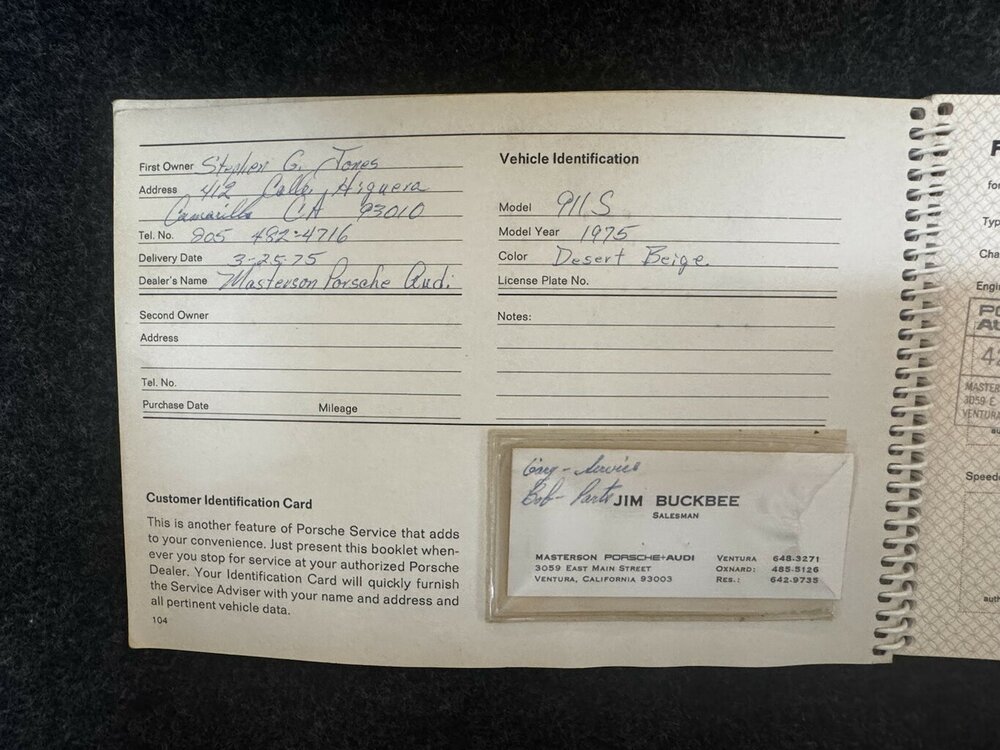 First Owner Stephen G. Jones
Address 412 Calle Higuera
Camarillo CA 93010
Tel. No. 805 482-4716
Delivery Date 3-25-75
Dealer's Name Masterson Porsche Aud.
Second Owner
Address
Tel. No.
Purchase Date Mileage
Vehicle Identification
Model 911S
Model Year 1975
Color Desert Beige.
License Plate No.
Notes:
Customer Identification Card
This is another feature of Porsche Service that adds
to your convenience. Just present this booklet when-
ever you stop for service at your authorized Porsche
Dealer. Your Identification Card will quickly furnish
the Service Adviser with your name and address and
all pertinent vehicle data.
104
Gary - Service
Bob - Parts
JIM BUCKBEE
SALESMAN
MASTERSON PORSCHE+AUDI
3059 EAST MAIN STREET
VENTURA, CALIFORNIA 93003
VENTURA 648-3271
OXNARD: 485-5126
RES.: 642-9735
for
Typ
Cha
Engi
PO
AU
42
MASTER
3059 E
VENTURA
au
Speedo
auth